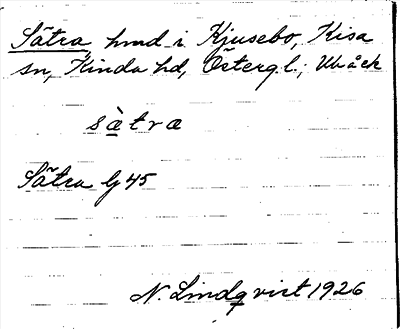 Sätra hmd i Kjusebo, Kisa
sn, Kinda hd, Östergl.;
sä̀tra
Sätra Gj 45
N. Lindqvist 1926